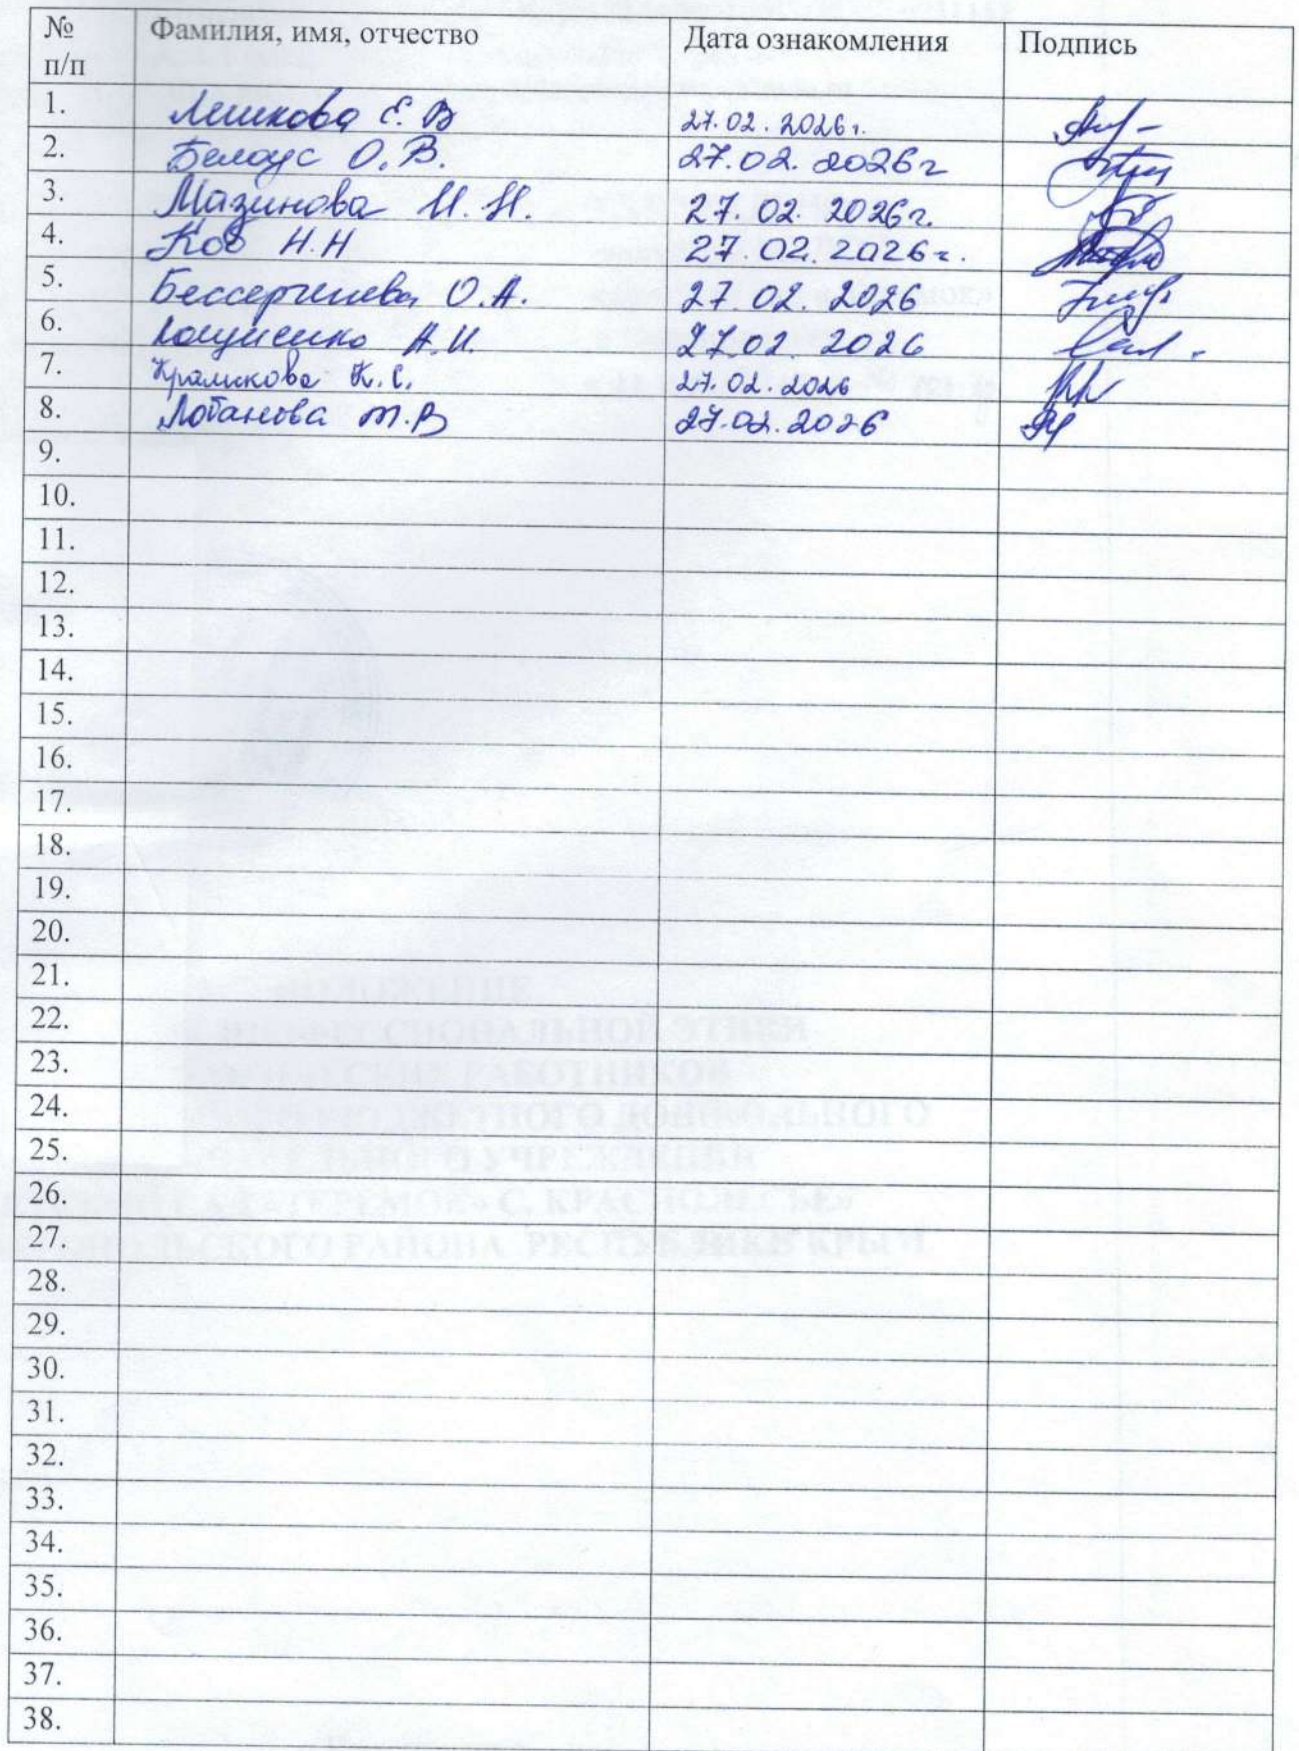 № п/п Фамилия, имя, отчество Дата ознакомления Подпись
1. Лешкова Е. В 27.02.2026г.
2. Белоус О.В. 27.02.2026г
3. Мазинова И.Н. 27.02.2026г.
4. Коб Н.Н 27.02.2026г.
5. О.А. 27.02.2026
6. А.И. 27.02.2026
7. К.С. 27.02.2026
8. Лобанова Т.В 27.02.2026
9.
10.
11.
12.
13.
14.
15.
16.
17.
18.
19.
20.
21.
22.
23.
24.
25.
26.
27.
28.
29.
30.
31.
32.
33.
34.
35.
36.
37.
38.